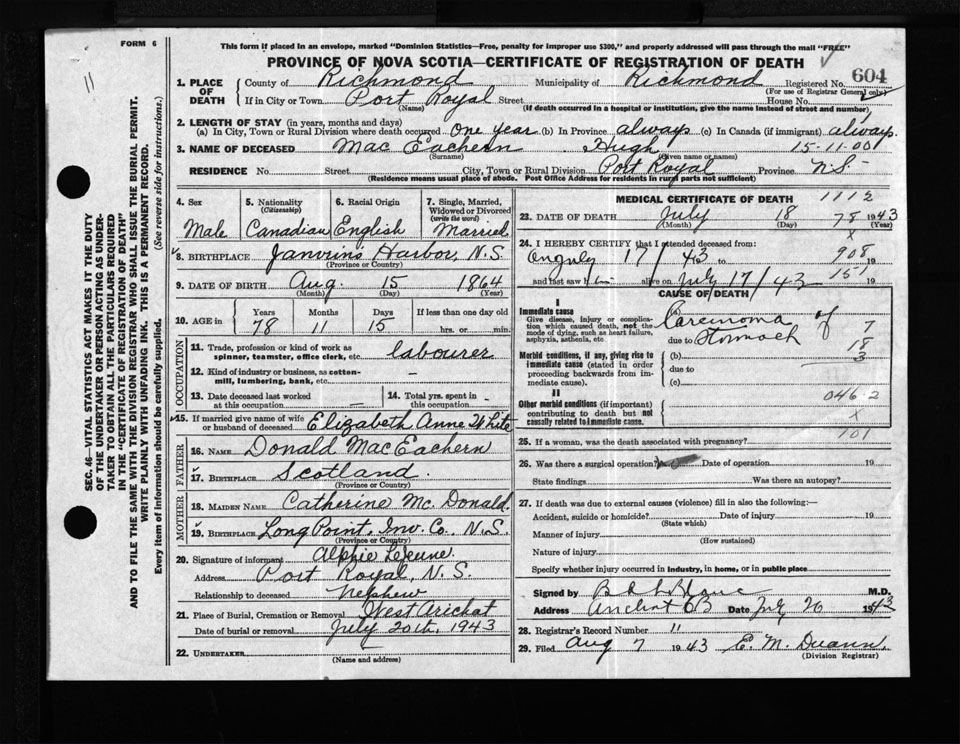 FORM 6
This form if placed in an envelope, marked "Dominion Statistics—Free, penalty for improper use $300," and properly addressed will pass through the mail "FREE"
PROVINCE OF NOVA SCOTIA—CERTIFICATE OF REGISTRATION OF DEATH
11
604
1. PLACE OF DEATH County of Richmond Municipality of Richmond Registered No.
(For use of Registrar General only)
If in City or Town Port Royal Street House No.
(Name) (If death occurred in a hospital or institution, give the name instead of street and number)
2. LENGTH OF STAY (in years, months and days)
(a) In City, Town or Rural Division where death occurred One year (b) In Province always (c) In Canada (if immigrant) always.
3. NAME OF DECEASED Mac Eachern Hugh 15-11-001
(Surname) (Given name or names)
RESIDENCE No. Street City, Town or Rural Division Port Royal Province N.S
(Residence means usual place of abode. Post Office Address for residents in rural parts not sufficient)
4. Sex Male
5. Nationality (Citizenship) Canadian
6. Racial Origin English
7. Single, Married, Widowed or Divorced (write the word) Married
8. BIRTHPLACE Janvrins Harbor, N.S.
(Province or Country)
9. DATE OF BIRTH Aug. 15 1864
(Month) (Day) (Year)
10. AGE in Years 78 Months 11 Days 15 If less than one day old hrs. or min.
OCCUPATION
11. Trade, profession or kind of work as spinner, teamster, office clerk, etc. labourer
12. Kind of industry or business, as cotton-mill, lumbering, bank, etc. —
13. Date deceased last worked at this occupation —
14. Total yrs. spent in this occupation —
15. If married give name of wife or husband of deceased Elizabeth Anne White
FATHER
16. NAME Donald MacEachern
17. BIRTHPLACE Scotland.
(Province or Country)
MOTHER
18. MAIDEN NAME Catherine Mc. Donald.
19. BIRTHPLACE Long Point, Inv. Co. N.S.
(Province or Country)
20. Signature of informant Alphie LeJeune.
Address Port Royal, N.S.
Relationship to deceased nephew
21. Place of Burial, Cremation or Removal West Arichat
Date of burial or removal July 20th, 1943
22. UNDERTAKER
(Name and address)
MEDICAL CERTIFICATE OF DEATH 1112
23. DATE OF DEATH July 18 1943
78
(Month) (Day) (Year)
x
24. I HEREBY CERTIFY that I attended deceased from:
17/43 19 to 908 19
and last saw h alive on July 17/43 151 19
CAUSE OF DEATH
I
Immediate cause
Give disease, injury or complication which caused death, not the mode of dying, such as heart failure, asphyxia, asthenia, etc
(a) Carcinoma of 7
due to Stomach 18
Morbid conditions, if any, giving rise to immediate cause (stated in order proceeding backwards from immediate cause).
(b) 3
due to
(c)
II
Other morbid conditions (if important) contributing to death but not causally related to immediate cause.
046 2
x
101
25. If a woman, was the death associated with pregnancy?
26. Was there a surgical operation? no Date of operation 19
State findings Was there an autopsy?
27. If death was due to external causes (violence) fill in also the following:—
Accident, suicide or homicide? Date of injury 19
(State which)
Manner of injury
(How sustained)
Nature of injury
Specify whether injury occurred in industry, in home, or in public place
Signed by M.D.
Address Arichat CB Date July 20 1943
28. Registrar's Record Number 11
29. Filed Aug 7 1943 E. M.
(Division Registrar)
SEC. 46—VITAL STATISTICS ACT MAKES IT THE DUTY
OF THE UNDERTAKER OR PERSON ACTING AS UNDER-
TAKER TO OBTAIN ALL THE PARTICULARS REQUIRED
IN THE "CERTIFICATE OF REGISTRATION OF DEATH"
AND TO FILE THE SAME WITH THE DIVISION REGISTRAR WHO SHALL ISSUE THE BURIAL PERMIT.
WRITE PLAINLY WITH UNFADING INK. THIS IS A PERMANENT RECORD.
Every item of information should be carefully supplied. (See reverse side for instructions.)